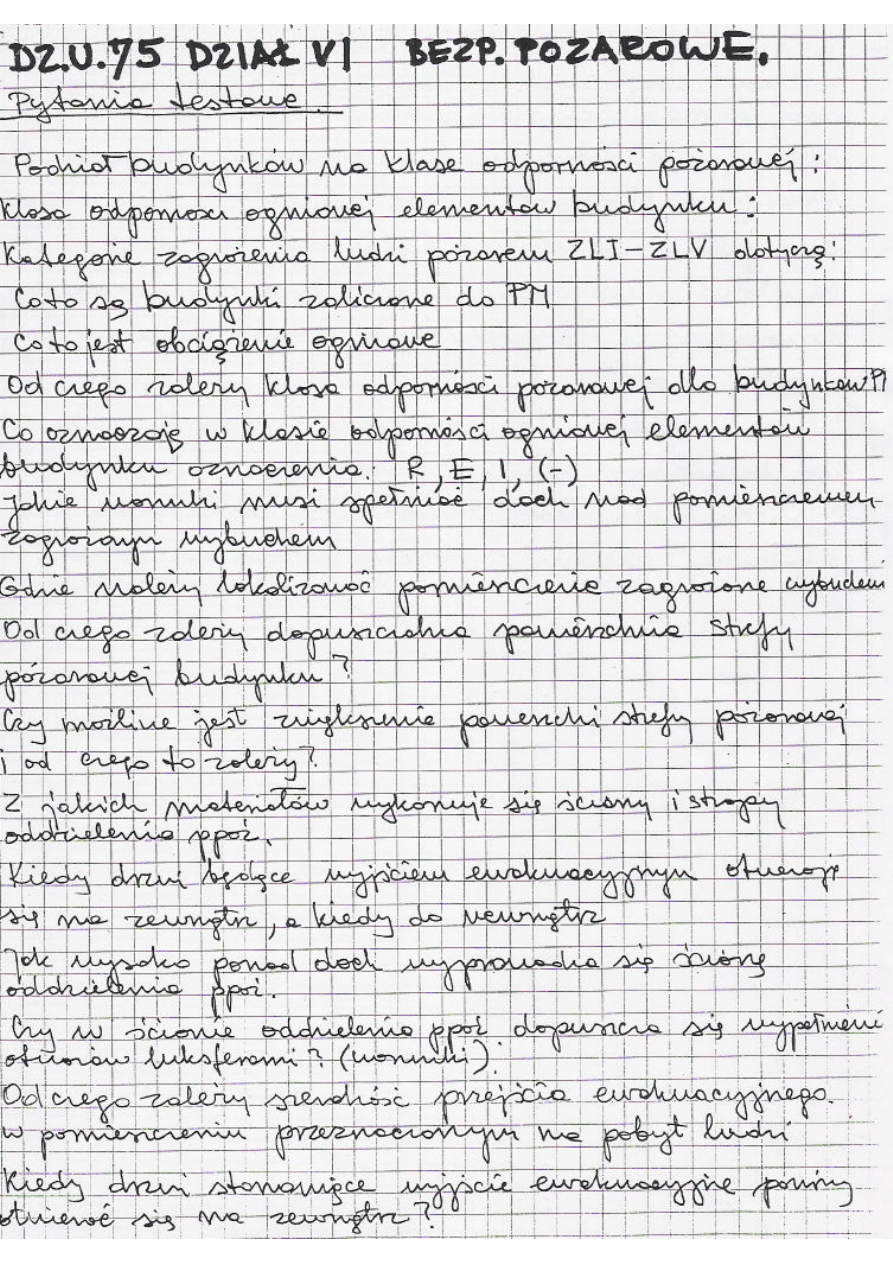 DZ.U.75 DZIAŁ VI BEZP. POZAROWE.
Pytania testowe
Podział budynków na klase odporności pożarowej :
Klasa odpornosci ogniowej elementów budynku :
Kategorie zagrożenia ludzi pożarem ZLI-ZLV dotyczą:
Co to są budynki zaliczone do PM
Co to jest obciążenie ogniowe
Od czego zależy klasa odporności pożarowej dla budynków PM
Co oznaczają w klasie odporności ogniowej elementów
budynku oznaczenia: R, E, I, (-)
Jakie warunki musi spełniać dach nad pomieszczeniem
zagrożonym wybuchem
Gdzie należy lokalizować pomieszczenie zagrożone wybuchem
Od czego zależy dopuszczalna powierzchnia strefy
pożarowej budynku ?
Czy możliwe jest zwiększenie powierzchni strefy pożarowej
i od czego to zależy ?
Z jakich materiałów wykonuje się ściany i stropy
oddzielenia ppoż.
Kiedy drzwi będące wyjściem ewakuacyjnym otwieraja
się na zewnątrz, a kiedy do wewnątrz
Jak wysoko ponad dach wyprowadza się ścianę
oddzielenia ppoż.
Czy w ścianie oddzielenia ppoż dopuszcza się wypełnień
otworów luksferami ? (warunki)
Od czego zależy szerokość przejścia ewakuacyjnego.
w pomieszczeniu przeznaczonym na pobyt ludzi
Kiedy drzwi stanowiące wyjście ewakuacyjne powinny
otwierać się na zewnątrz ?